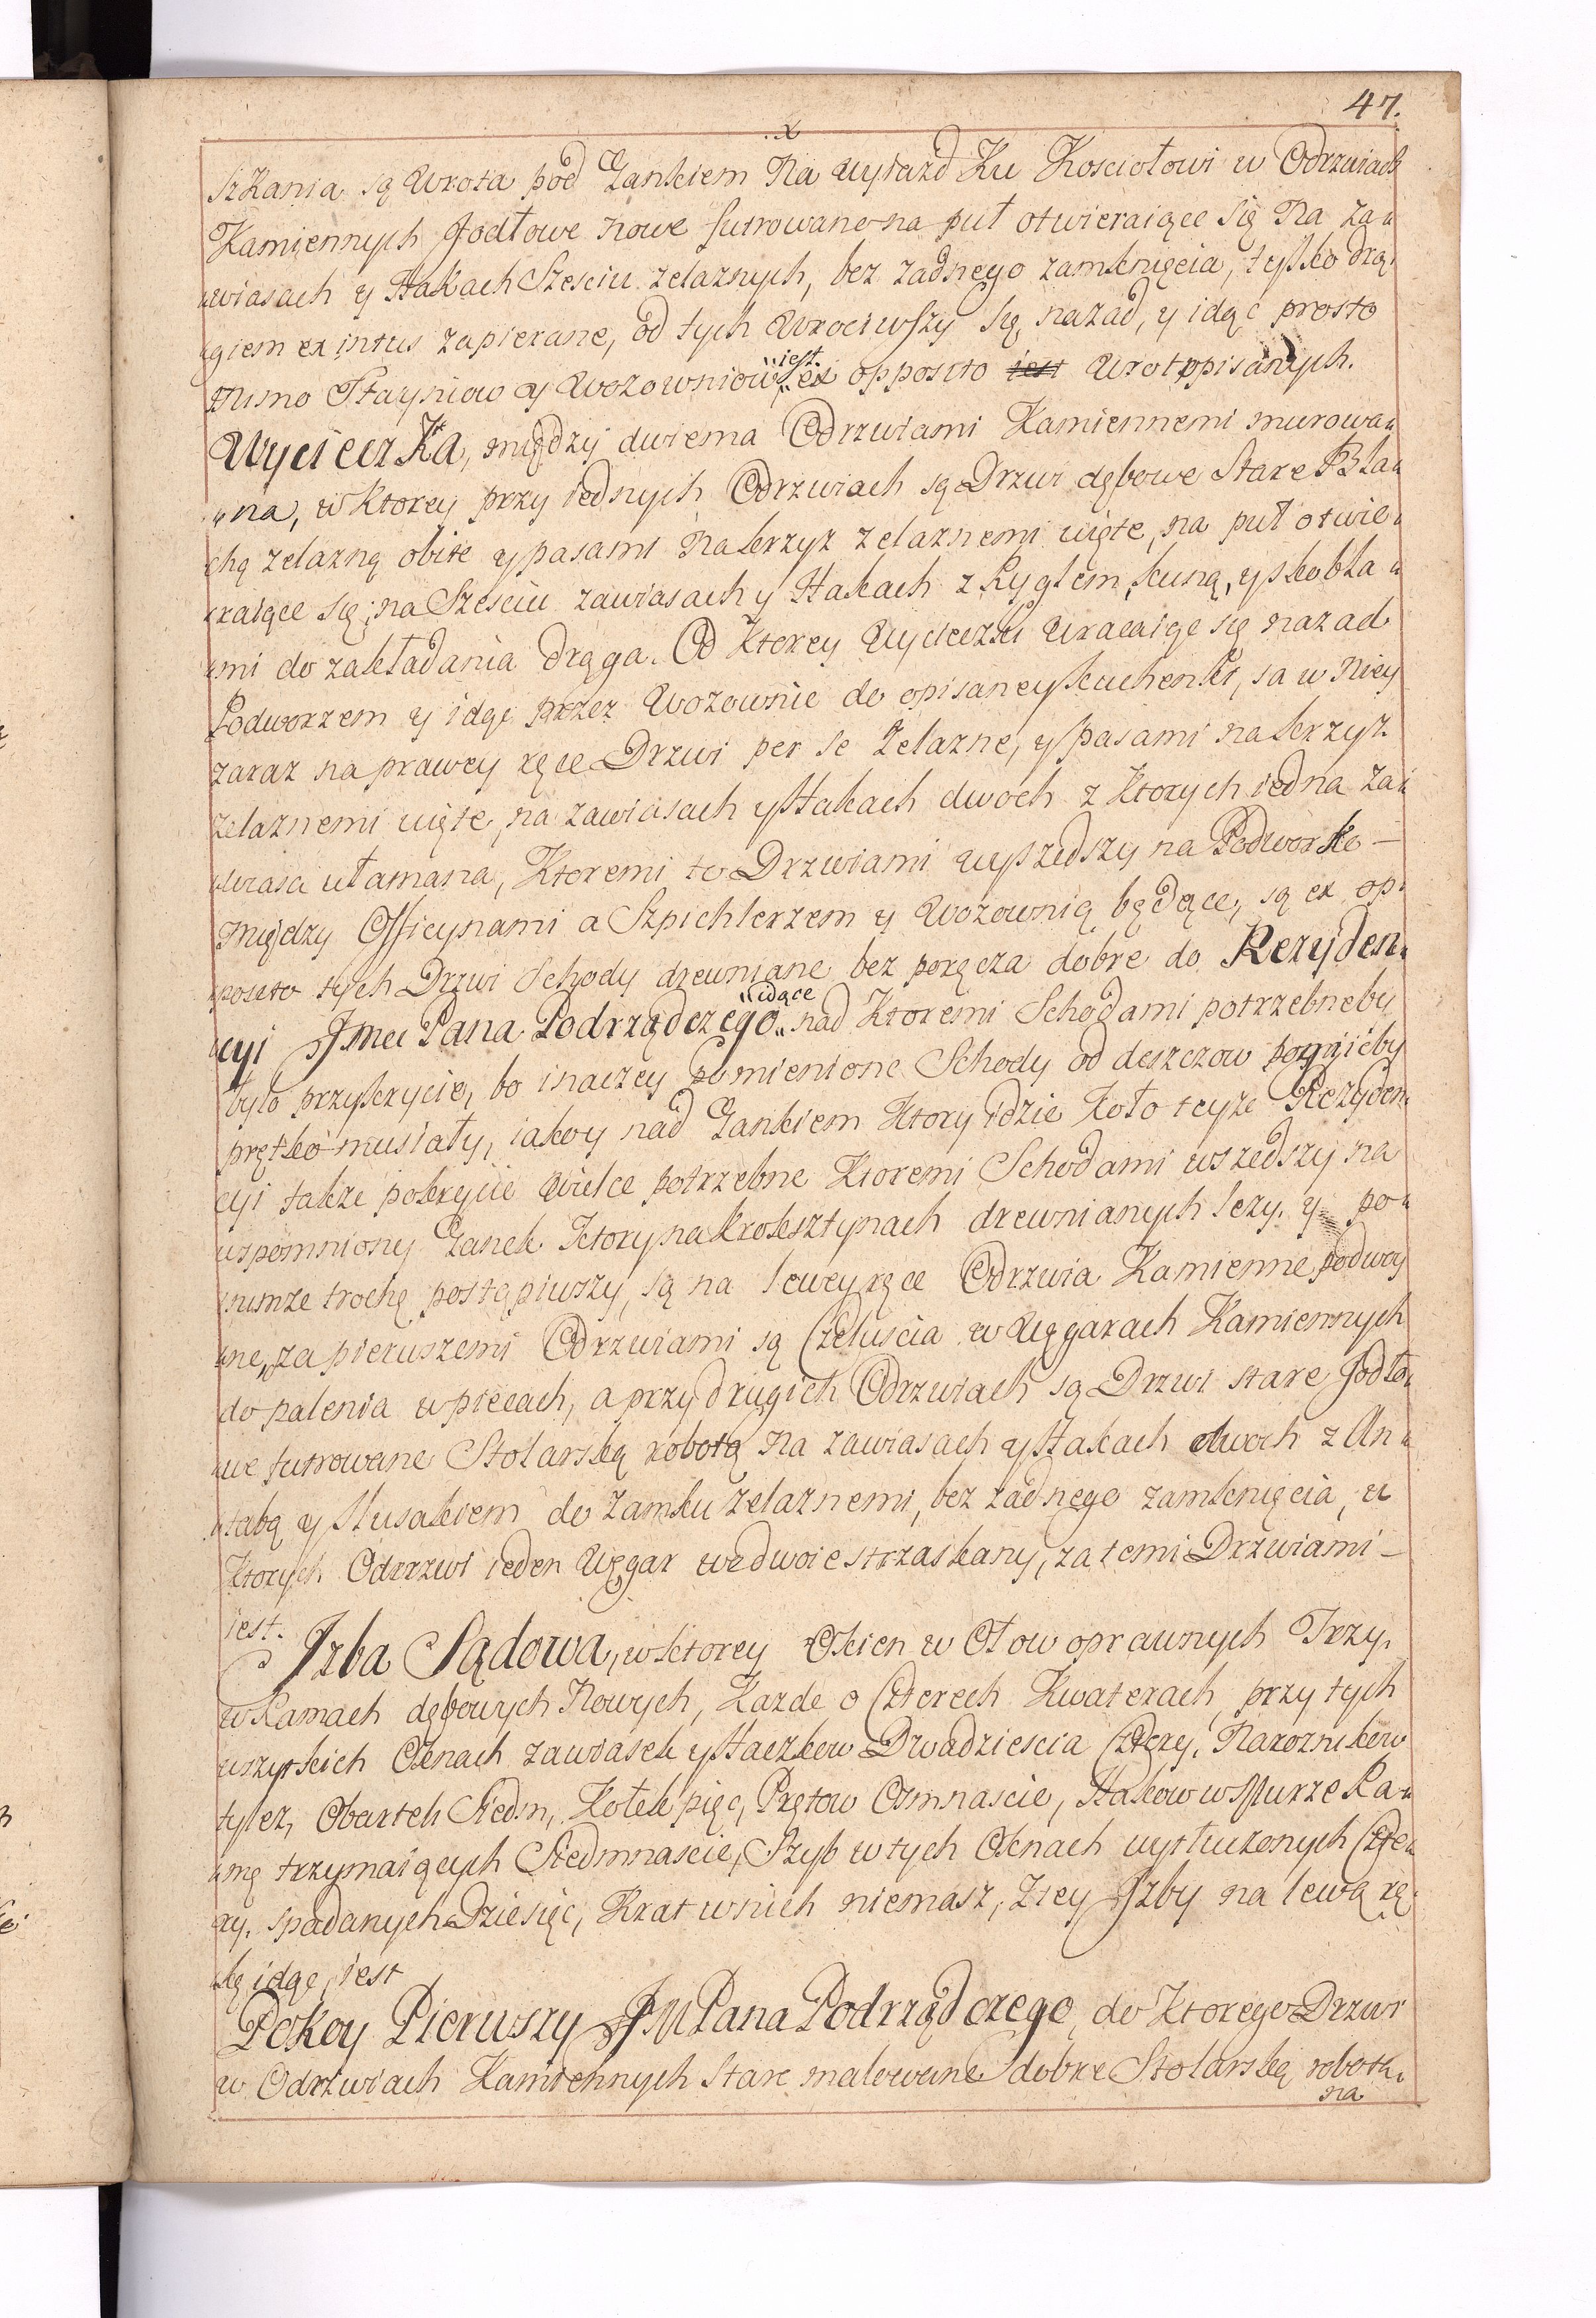 47.
szkania są Wrota pod Gankiem Na wyiazd Ku Kosciołowi w Odrzwiach
Kamiennych Jodłowe nowe futrowane na puł otwieraiące się Na za„
„wiasach y Hakach Szesciu zelaznych, bez zadnego zamknięcia, tylko drą„
„giem ex intus zapierane, od tych Wrociwszy się nazad, y idąc prosto
mimo Stayniow y Wozowniow „iest„ ex opposito iest Wrot opisanych.
Wycieczka, między dwiema Odrzwiami Kamiennemi murowa„
„na, w Ktorey przy iednych Odrzwiach są Drzwi dębowe Stare Bla„
chą zelazną obite y pasami Na krzyz zelaznemi uięte, na puł otwie„
„raiące się, na Szesciu zawiasach y Hakach z Ryglem, kuną, y skobla„
„mi do zakładania drąga. Od Ktorey Wycieczki Wracaiąc się nazad
Podworzem y idąc przez Wozownie do opisaney kuchenki, są w Niey
zaraz na prawey ręce Drzwi per se Zelazne, y pasami na krzyz
zelaznemi uięte, na zawiasach y Hakach dwoch z Ktorych iedna za„
„wiasa ułamana, Ktoremi to Drzwiami wyszedszy na Podworko —
między Officynami a Szpichlerzem y Wozownią będące, są ex op„
„posito tych Drzwi Schody drewniane bez poręcza dobre do Rezyden„
„cyi Jmci Pana Podrządczego „idące„ nad Ktoremi Schodami potrzebne by
było przykrycie, bo inaczey pomienione Schody od deszczow pognićby
prętko musiały, iako y nad Gankiem Ktory idzie koło teyze Rezyden„
cyi takze pokrycie Wielce potrzebne Ktoremi Schodami wszedszy na
wspomniony Ganek Ktory na Kroksztynach drewnianych lezy, y po„
„nimze trochę postąpiwszy, są na lewey ręce Odrzwia Kamienne podwoy
„ne, za pierwszemi Odrzwiami są Czeluscia w Węgarach Kamiennych
do palenia w piecach, a przy drugich Odrzwiach są Drzwi stare Jodło„
„we futrowane Stolarską robotą Na zawiasach y Hakach dwoch z An„
„tabą y Wusakiem do Zamku zelaznemi, bez zadnego zamknięcia, u
Ktorych Odrzwi ieden Węgar we dwoie strzaskany, za temi Drzwiami —
iest.
Jzba Sądowa, w Ktorey Okien w Ołow oprawnych Trzy,
w Ramach dębowych Nowych, Kazde o Czterech Kwaterach, przy tych
wszytkich Oknach zawiasek y Haczkow Dwadziescia Cztery, Naroznikow
tylez, Obartek Siedm, Kołek pięć, Prętow Osmnascie, Hakow w Murze Ra„
„mę trzymaiących Siedmnascie, Szyb w tych Oknach wytłuczonych Czte„
ry, spadanych Dziesięć, Krat w nich niemasz, Z tey Jzby na lewą rę„
„kę idąc, iest
Pokoy Pierwszy JM Pana Podrządczego, do Ktorego Drzwi
w Odrzwiach Kamiennych Stare malowane dobre Stolarską robotą,
na